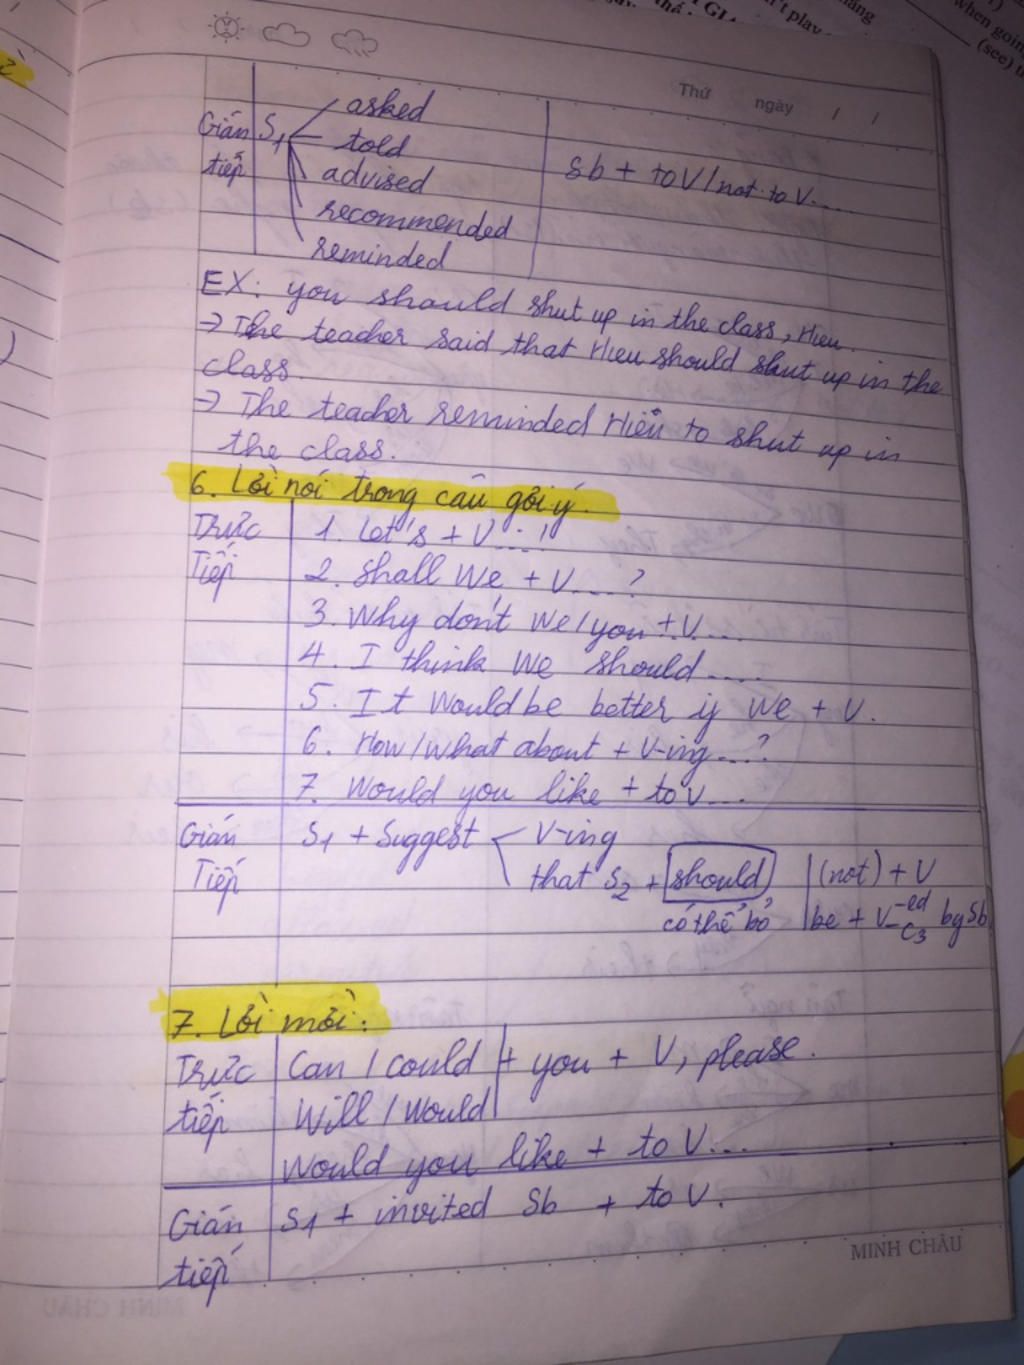 Thứ ngày / /
Gián S1 asked
tiếp told
advised
recommended
reminded
Sb + to V / not to V....
EX: you should shut up in the class, Hieu.
→ The teacher said that Hieu should shut up in the
class.
→ The teacher reminded Hiếu to shut up in
the class.
6. Lời nói trong câu gợi ý.
Trực 1. Let's + V....!
Tiếp 2. Shall We + V....?
3. Why don't We / you + V....
4. I think We should....
5. It Would be better if We + V.
6. How / What about + V-ing....?
7. Would you like + to V...
Gián S1 + Suggest V-ing
Tiếp that S2 + should (not) + V
có thể bỏ be + V-ed C3 by Sb
7. Lời mời:
Trực Can / could + you + V, please.
tiếp Will / Would
Would you like + to V...
Gián S1 + invited Sb + to V.
tiếp
MINH CHÂU
't play
when going
(see) t